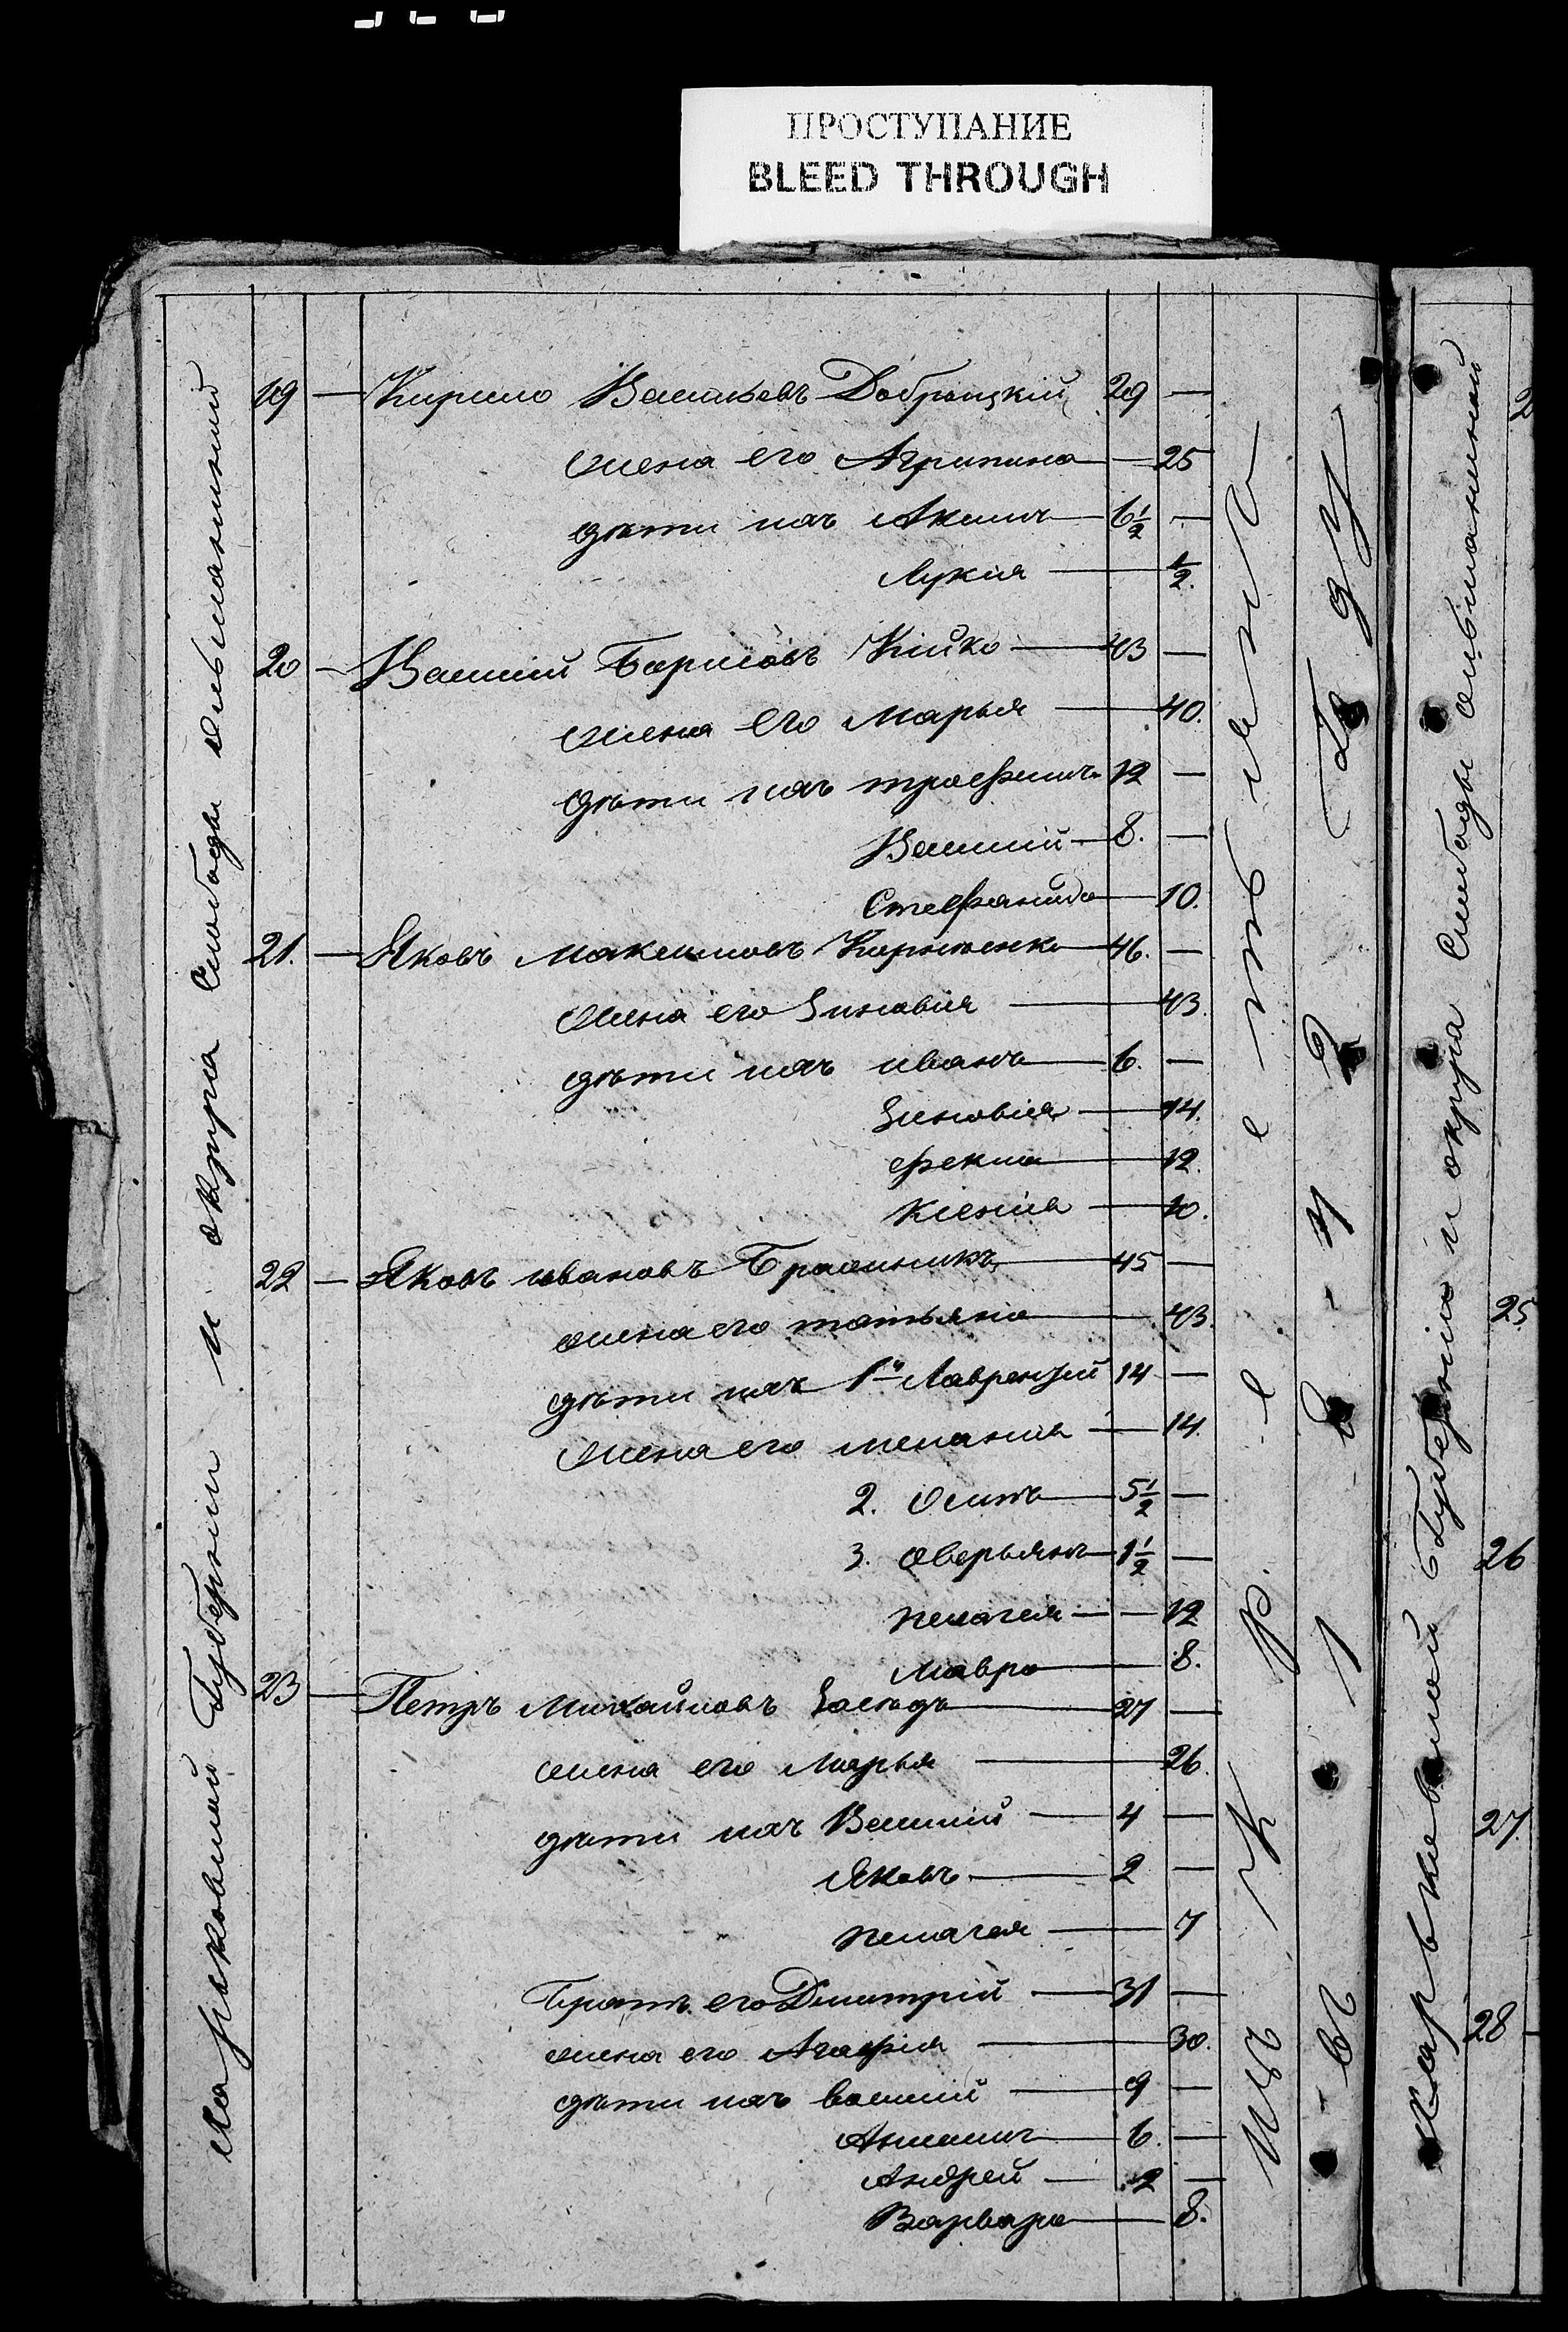 ПРОСТУПАНИЕ
BLEED THROUGH
Харьковской Губернии и округа Слободы ольшанской
19 — Кирило Васильевъ Добрыцкій 29 —
жена его Агрипина — 25
дѣти ихъ Акимъ 6 1/2 —
Лукія — 1/2.
20 — Василій Борисовъ Кійко — 43 —
жена его Марья — 40.
дѣти ихъ трофимъ 12 —
Василій — 8. —
Стефанида — 10.
21. — Яковъ Максимовъ — 46. —
жена его Зиновія — 43.
дѣти ихъ иванъ — 6. —
Зиновія — 14.
фекла — 12.
Ксенія — 10.
22 — Яковъ ивановъ Бражникъ — 45 —
жена его татьяна — 43.
дѣти ихъ 1й Лаврентій 14 —
жена его меланія — 14.
2. Осипъ — 5 1/2 —
3. Аверьянъ — 1 1/2 —
пелагея — 12
Мавра — 8.
23 — Петръ Михайловъ — 27 —
жена его Марья — 26.
дѣти ихъ Василій — 4 —
Яковъ — 2 —
пелагея — 7
Братъ его Дмитрій — 31 —
жена его Агафія — 30.
дѣти ихъ василій — 9 —
6. —
Андрей — 2 —
Варвара — 8.
изъ Крестьянъ
въ 1848 Году
Харьковской Губерніи и округа Слободы ольшанской
2
25
26
27.
28